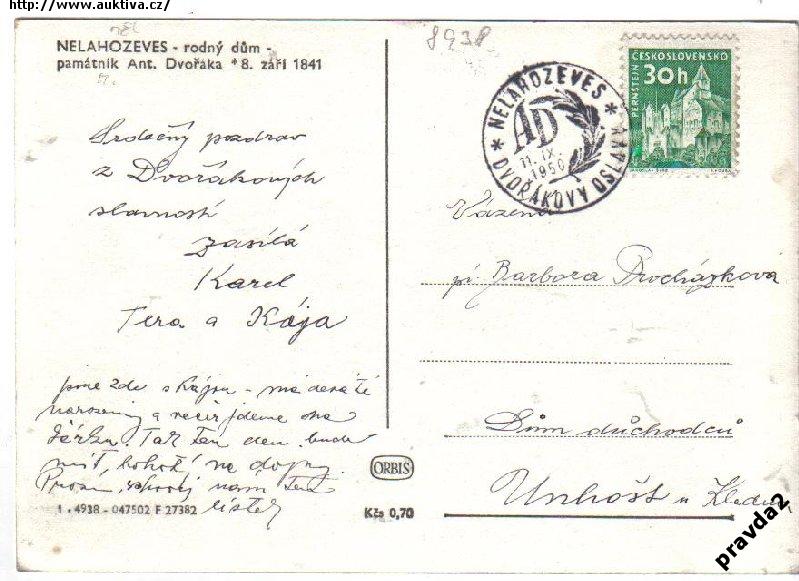 http://www.auktiva.cz/
8938
NELAHOZEVES - rodný dům -
památník Ant. Dvořáka *8. září 1841
NELAHOZEVES
AD
11.IX.
DVOŘÁKOVY OSLAVY
ČESKOSLOVENSKO
30h
PERNŠTEJN
Srdečný pozdrav
z Dvořákových
slavností
zasílá
Karel
Tera a Kája
Vážená
pí Barbora Procházková
Dům důchodců
Unhošť u Kladna
jsme zde s Kájou - má desáté
narozeniny a večír jdeme na
Tak ten den bude
mít, bohatý na dojmy.
Prosím, schovej nám ten
lístek
ORBIS
1 . 4938 - 047502 F 27382
Kčs 0,70
pravda2